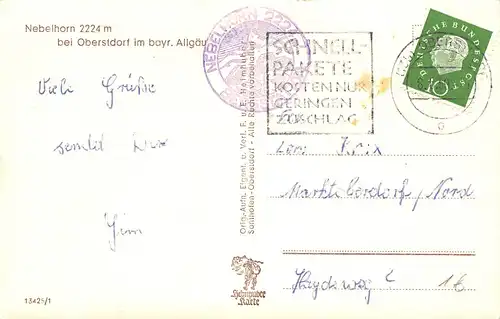 Nebelhorn 2224 m
bei Oberstdorf im bayr. Allgäu
NEBELHORN 2224
SCHNELL-
PAKETE
KOSTEN NUR
GERINGEN
ZUSCHLAG
DEUTSCHE BUNDESPOST
10
Viele Grüße
sendet
Marktoberdorf/Nord
Orig.-Aufn. Eigent. u. Verl. F. u. E. Heimhuber
Sonthofen-Oberstdorf - Alle Rechte vorbehalten
Heimhuber
Karte
13425/1